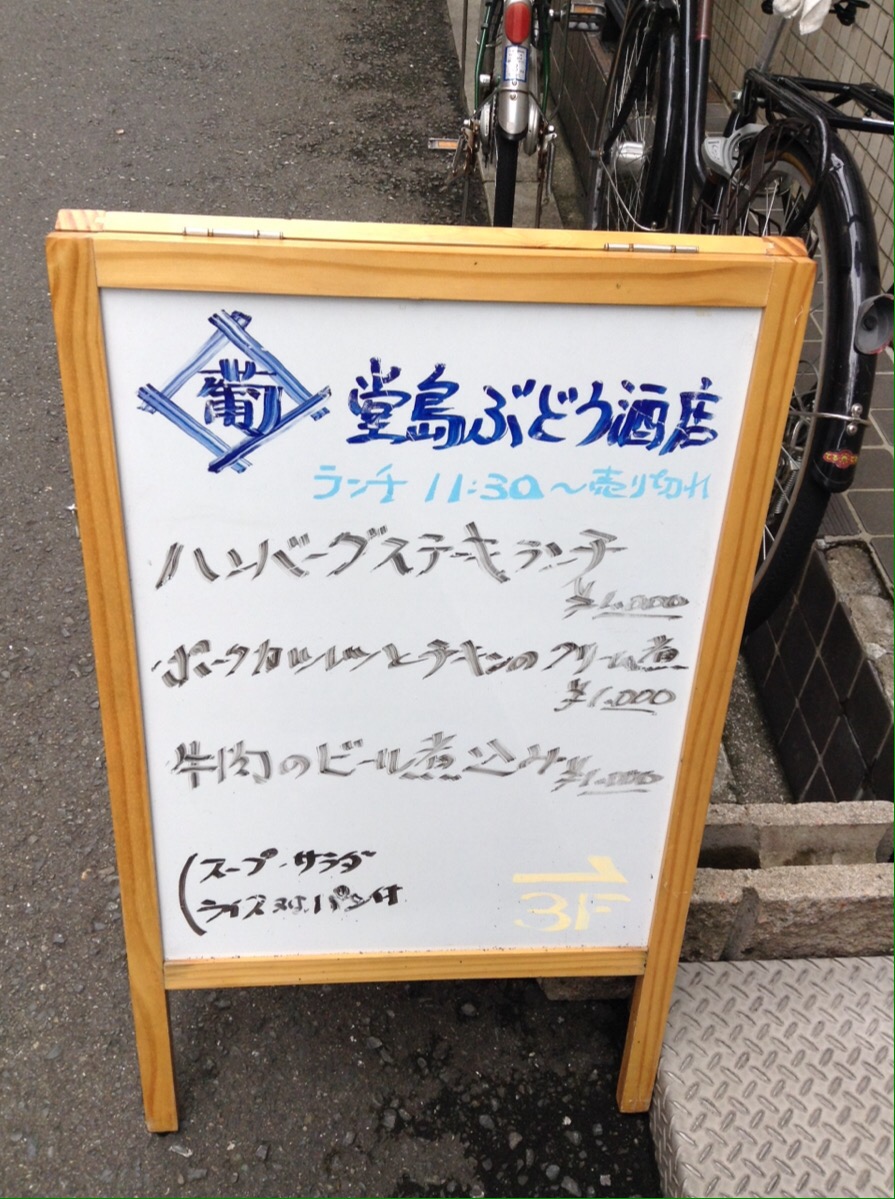 葡
堂島ぶどう酒店
ランチ 11:30~売り切れ
ハンバーグステーキランチ
¥1,000
ポークカツレツとチキンのクリーム煮
¥1,000
牛肉のビール煮込み ¥1,000
(スープ・サラダ
ライス又はパン付
3F